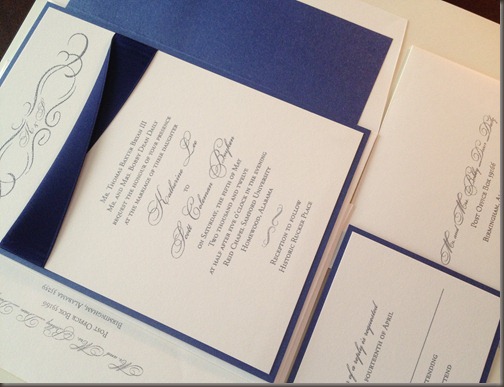 Mr. Thomas Baxter Bryan III
Mr. and Mrs. Bobby Dean Daily
request the honour of your presence
at the marriage of their daughter
Katharine Lee
to
Scott Coleman
on Saturday, the fifth of May
Two thousand and twelve
at half after five o'clock in the evening
Reid Chapel, Samford University
Homewood, Alabama
Reception to follow
Historic Rucker Place
Mr. and Mrs. Bobby Dean Daily
Post Office Box 19166
Birmingham, Alabama 35219
Mr. and Mrs. Bobby Dean Daily
Post Office Box 19166
of a reply is requested
fourteenth of April